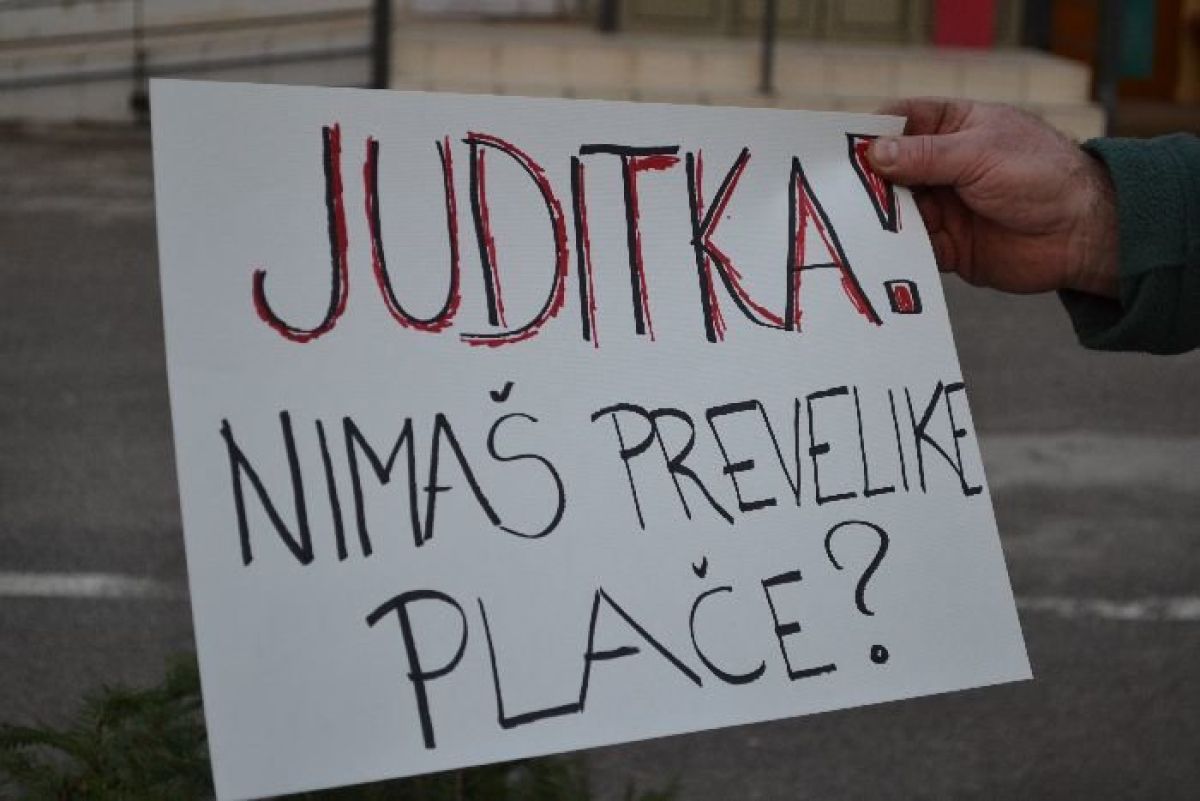 JUDITKA!
NIMAŠ PREVELIKE
PLAČE?